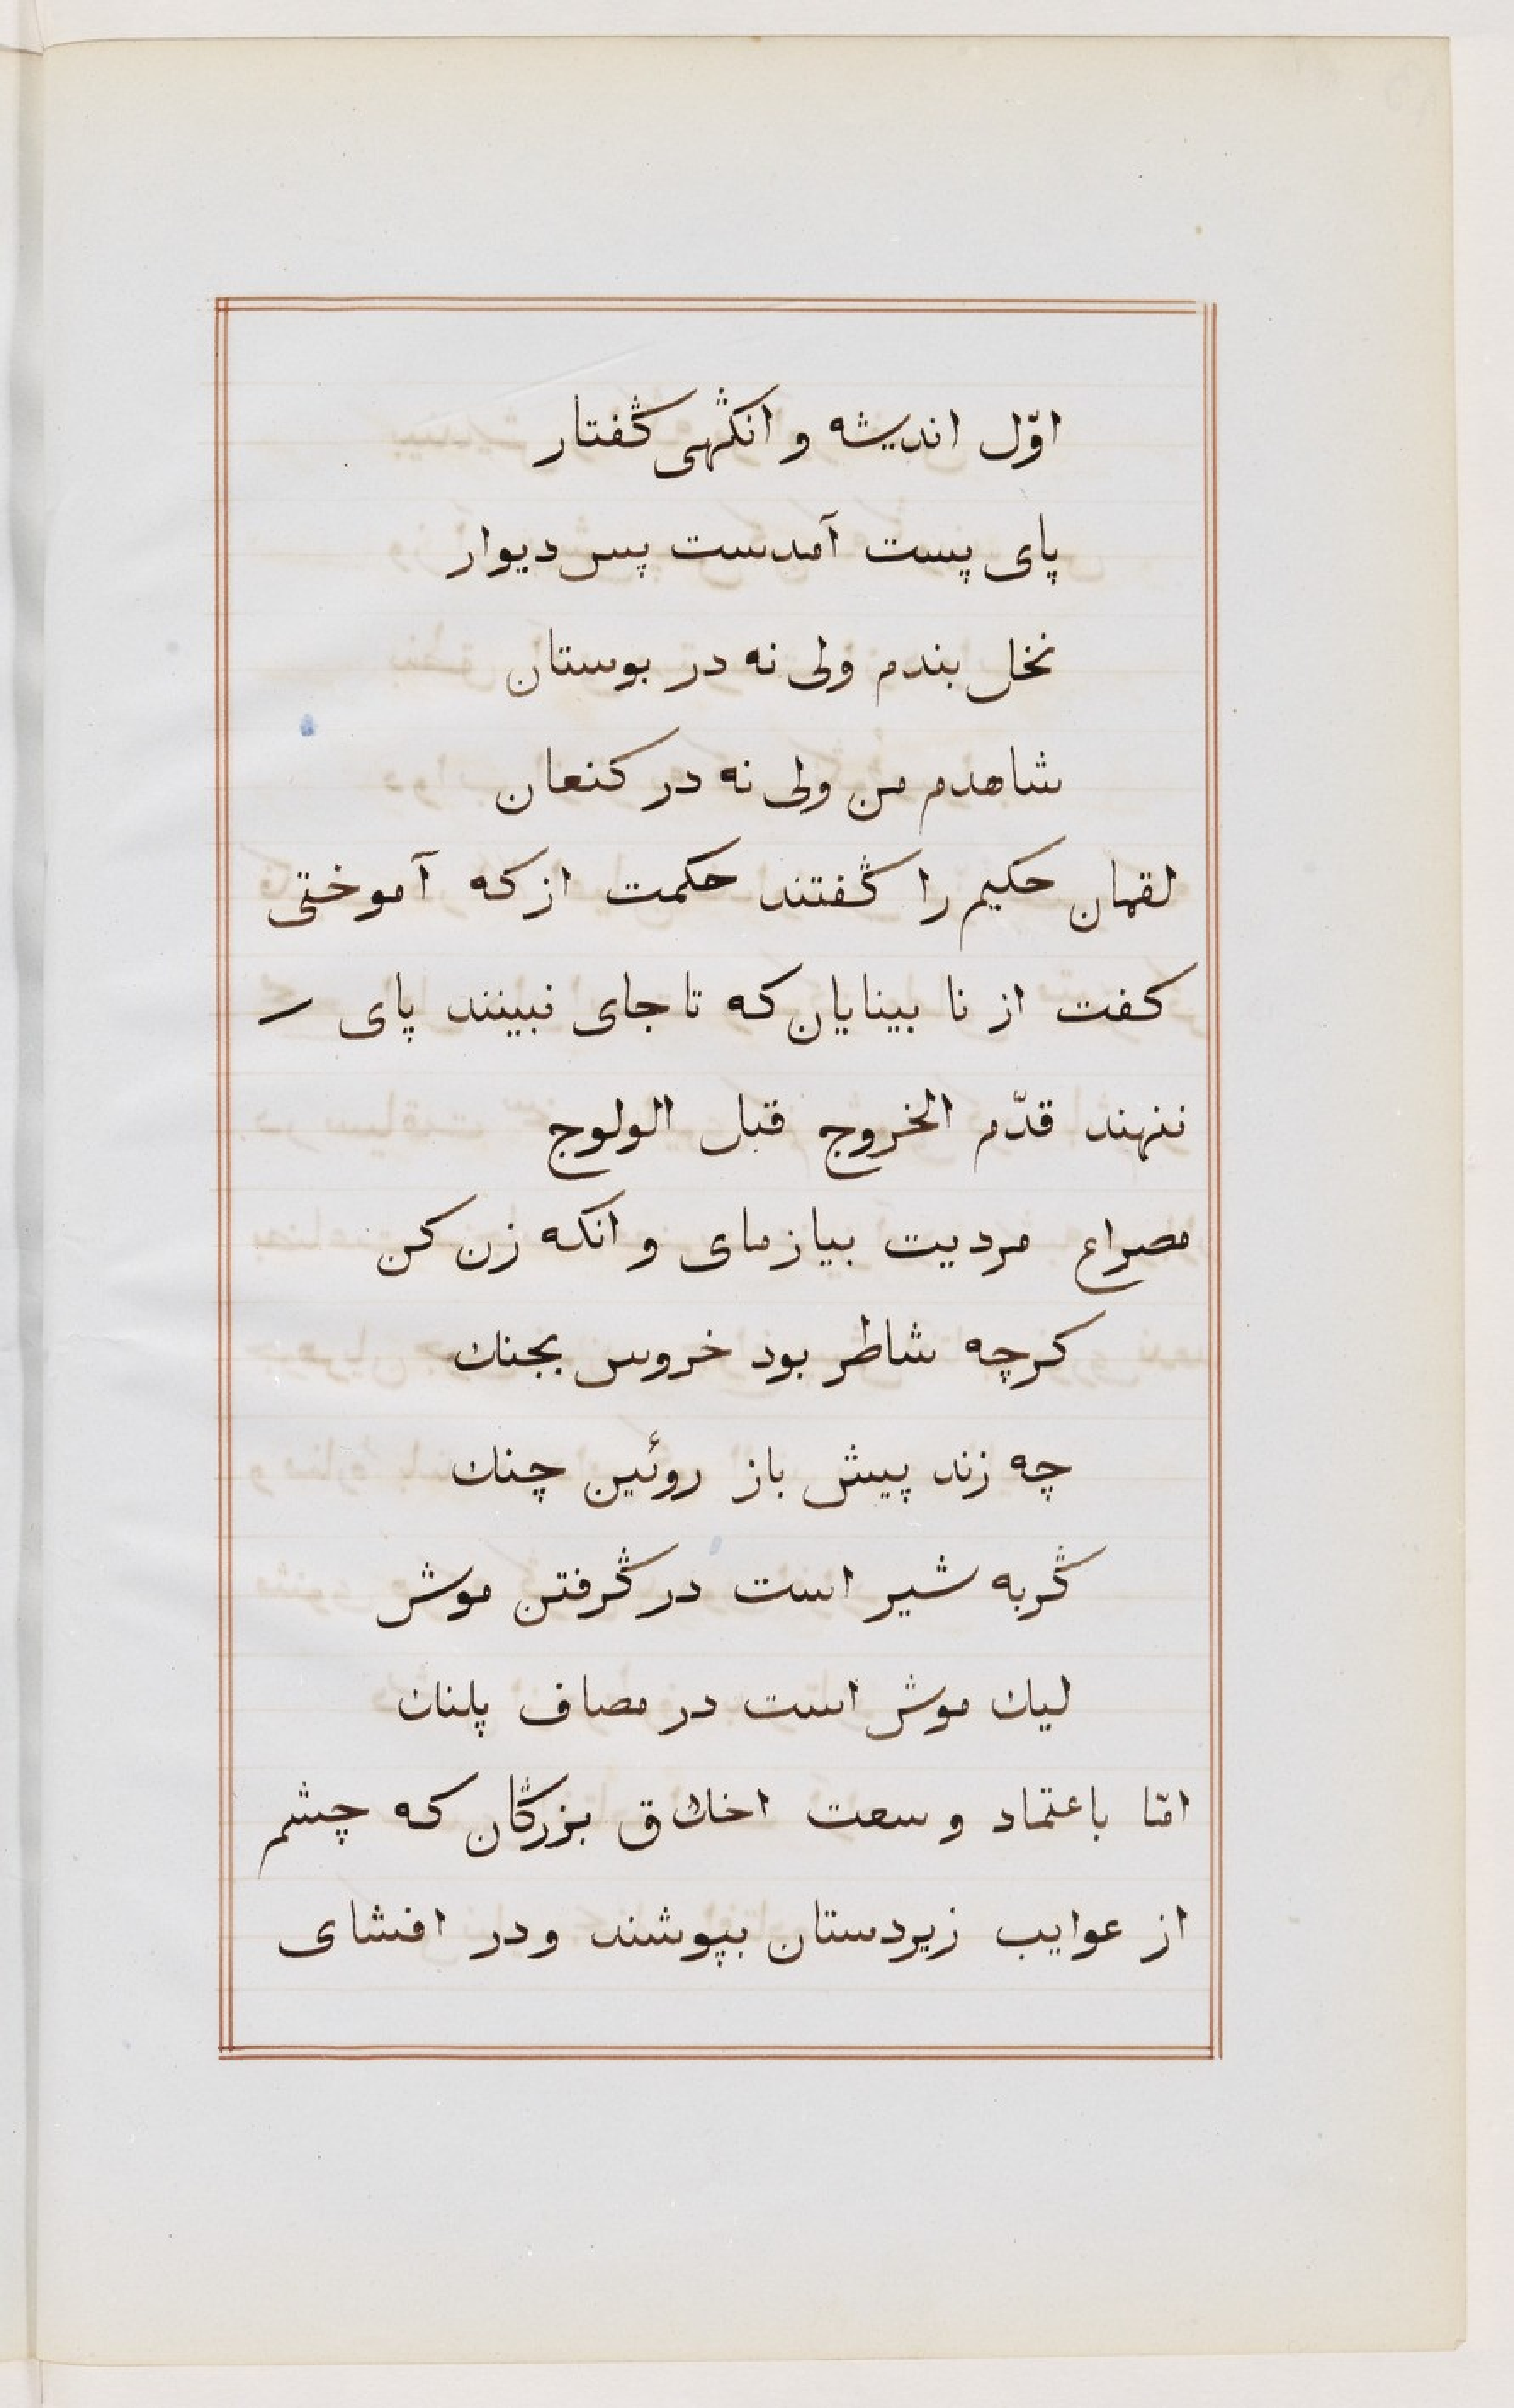 اوّل اندیشه و انگهی گفتار
پای پست آمدست پس دیوار
نخل بندم ولی نه در بوستان
شاهدم من ولی نه در کنعان
لقمان حکیم را گفتند حکمت از که آموختی
کفت از نا بینایان که تا جای نبینند پای
ننهند قدّم الخروج قبل الولوج
مصراع مردیت بیازمای و انکه زن کن
کرچه شاطر بود خروس بجنك
چه زند پیش باز روئین چنك
گربه شیر است در گرفتن موش
لیك موش است در مصاف پلنك
امّا باعتماد وسعت اخلاق بزرگان که چشم
از عوایب زیردستان بپوشند ودر افشای